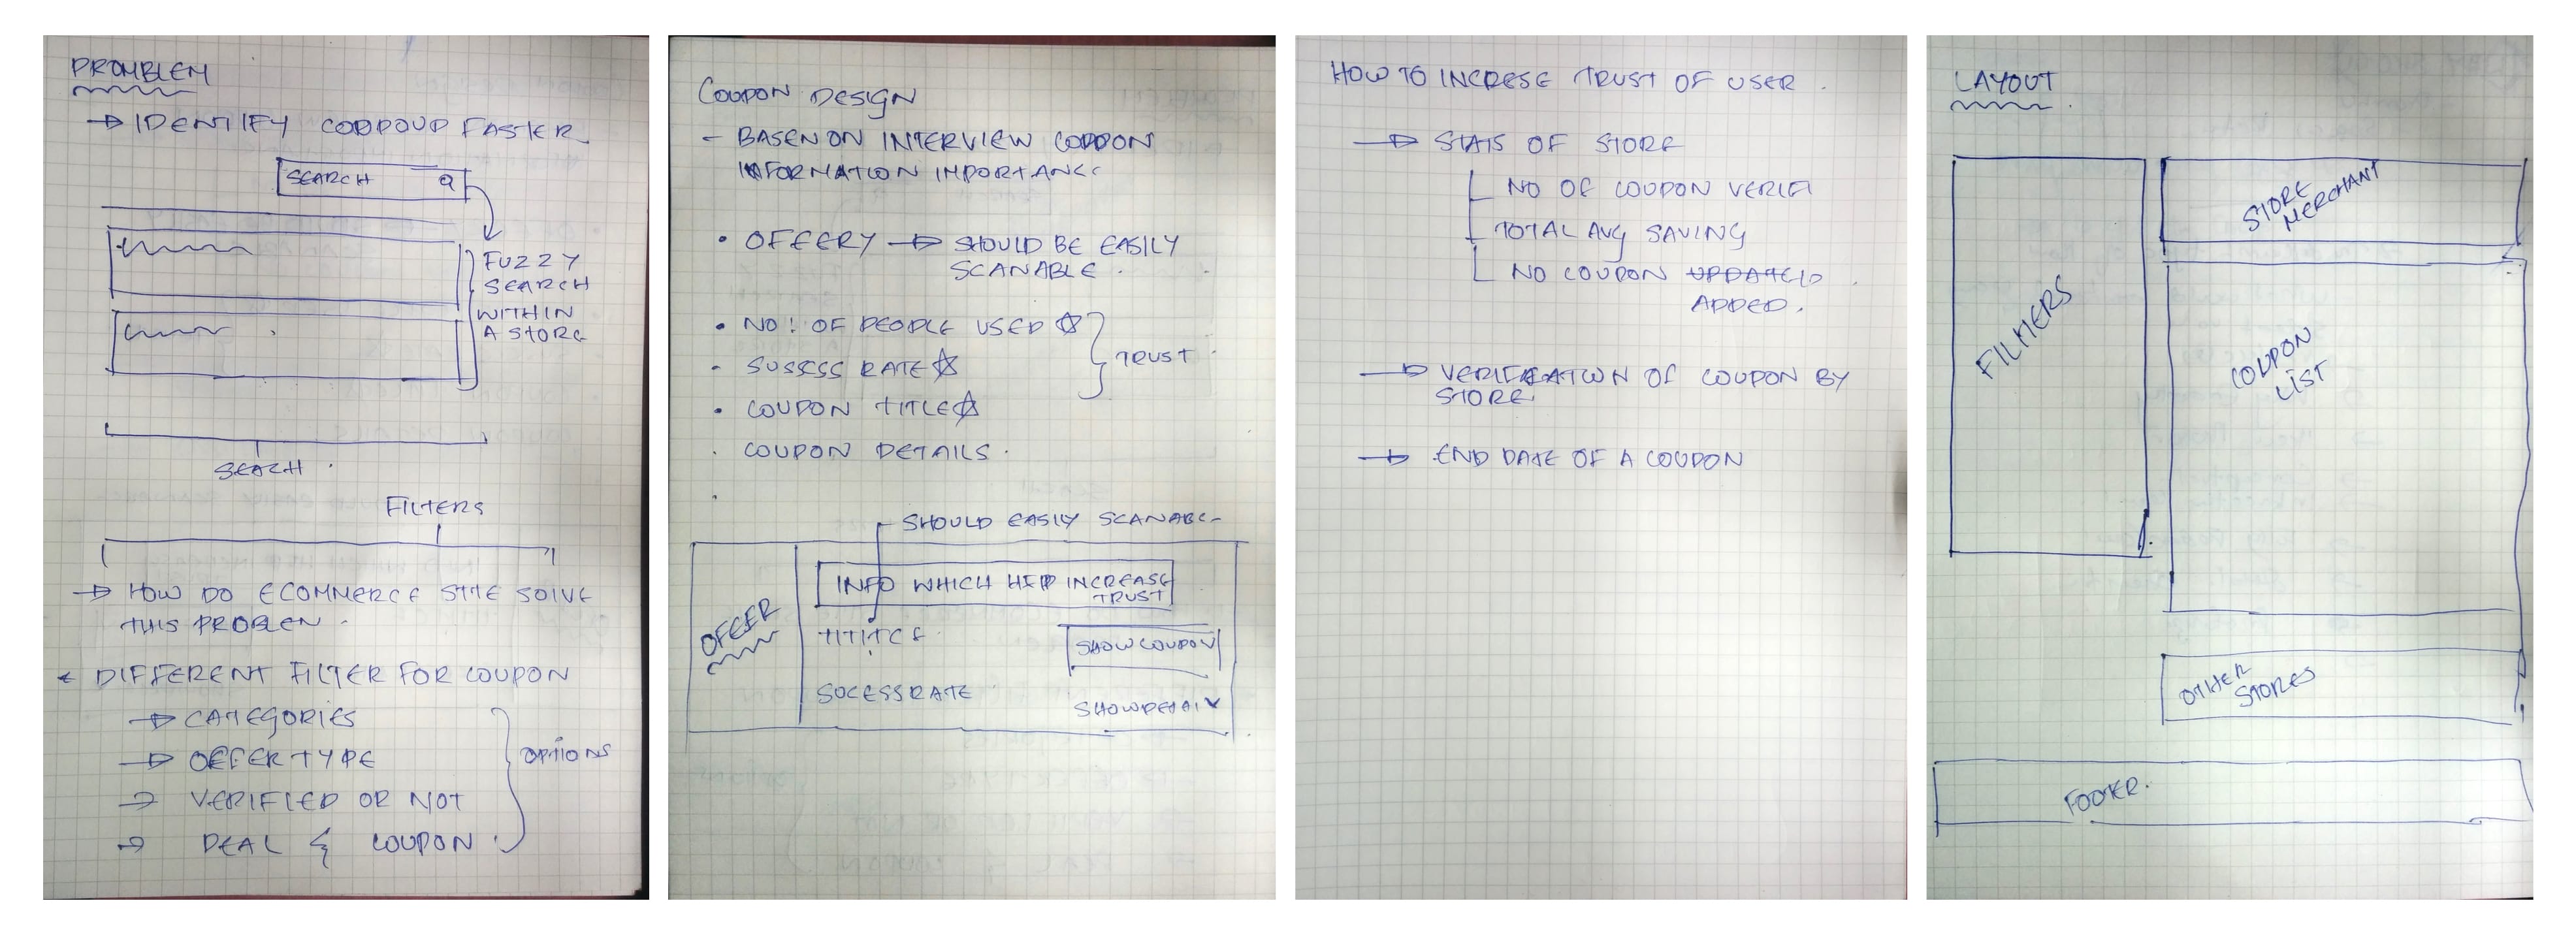 PROMBLEM
→ IDENTIFY COUPOUD FASTER
SEARCH
FUZZY
SEARCH
WITHIN
A STORE
SEACH
FILTERS
→ HOW DO ECOMMERCE SITE SOLVE
THIS PROBLEM
DIFFERENT FILTER FOR COUPON
→ CATEGORIES
→ OFFER TYPE
→ VERIFIED OR NOT
→ DEAL & COUPON
OPTIONS
COUPON DESIGN
- BASEN ON INTERVIEW COUPON
INFORMATION IMPORTANCE
• OFFERY → SHOULD BE EASILY
SCANABLE.
• NO: OF PEOPLE USED ☆
• SUSSESS RATE ☆
• COUPON TITLE ☆
• COUPON DETAILS.
TRUST
SHOULD EASLY SCANABL
OFFER
INFO WHICH HELP INCREASE
TRUST
TITITCE
SHOW COUPON
SUCESSRATE
SHOWDETAIL
HOW TO INCRESE TRUST OF USER.
→ STATS OF STORE
NO OF COUPON VERIFI
TOTAL AVG SAVING
NO COUPON UPDATED
ADDED.
→ VERIFICATION OF COUPON BY
STORE.
→ END DATE OF A COUPON
LAYOUT
FILTERS
STORE
MERCHANT
COUPON
LIST
OTHER
STORES
FOOTER.